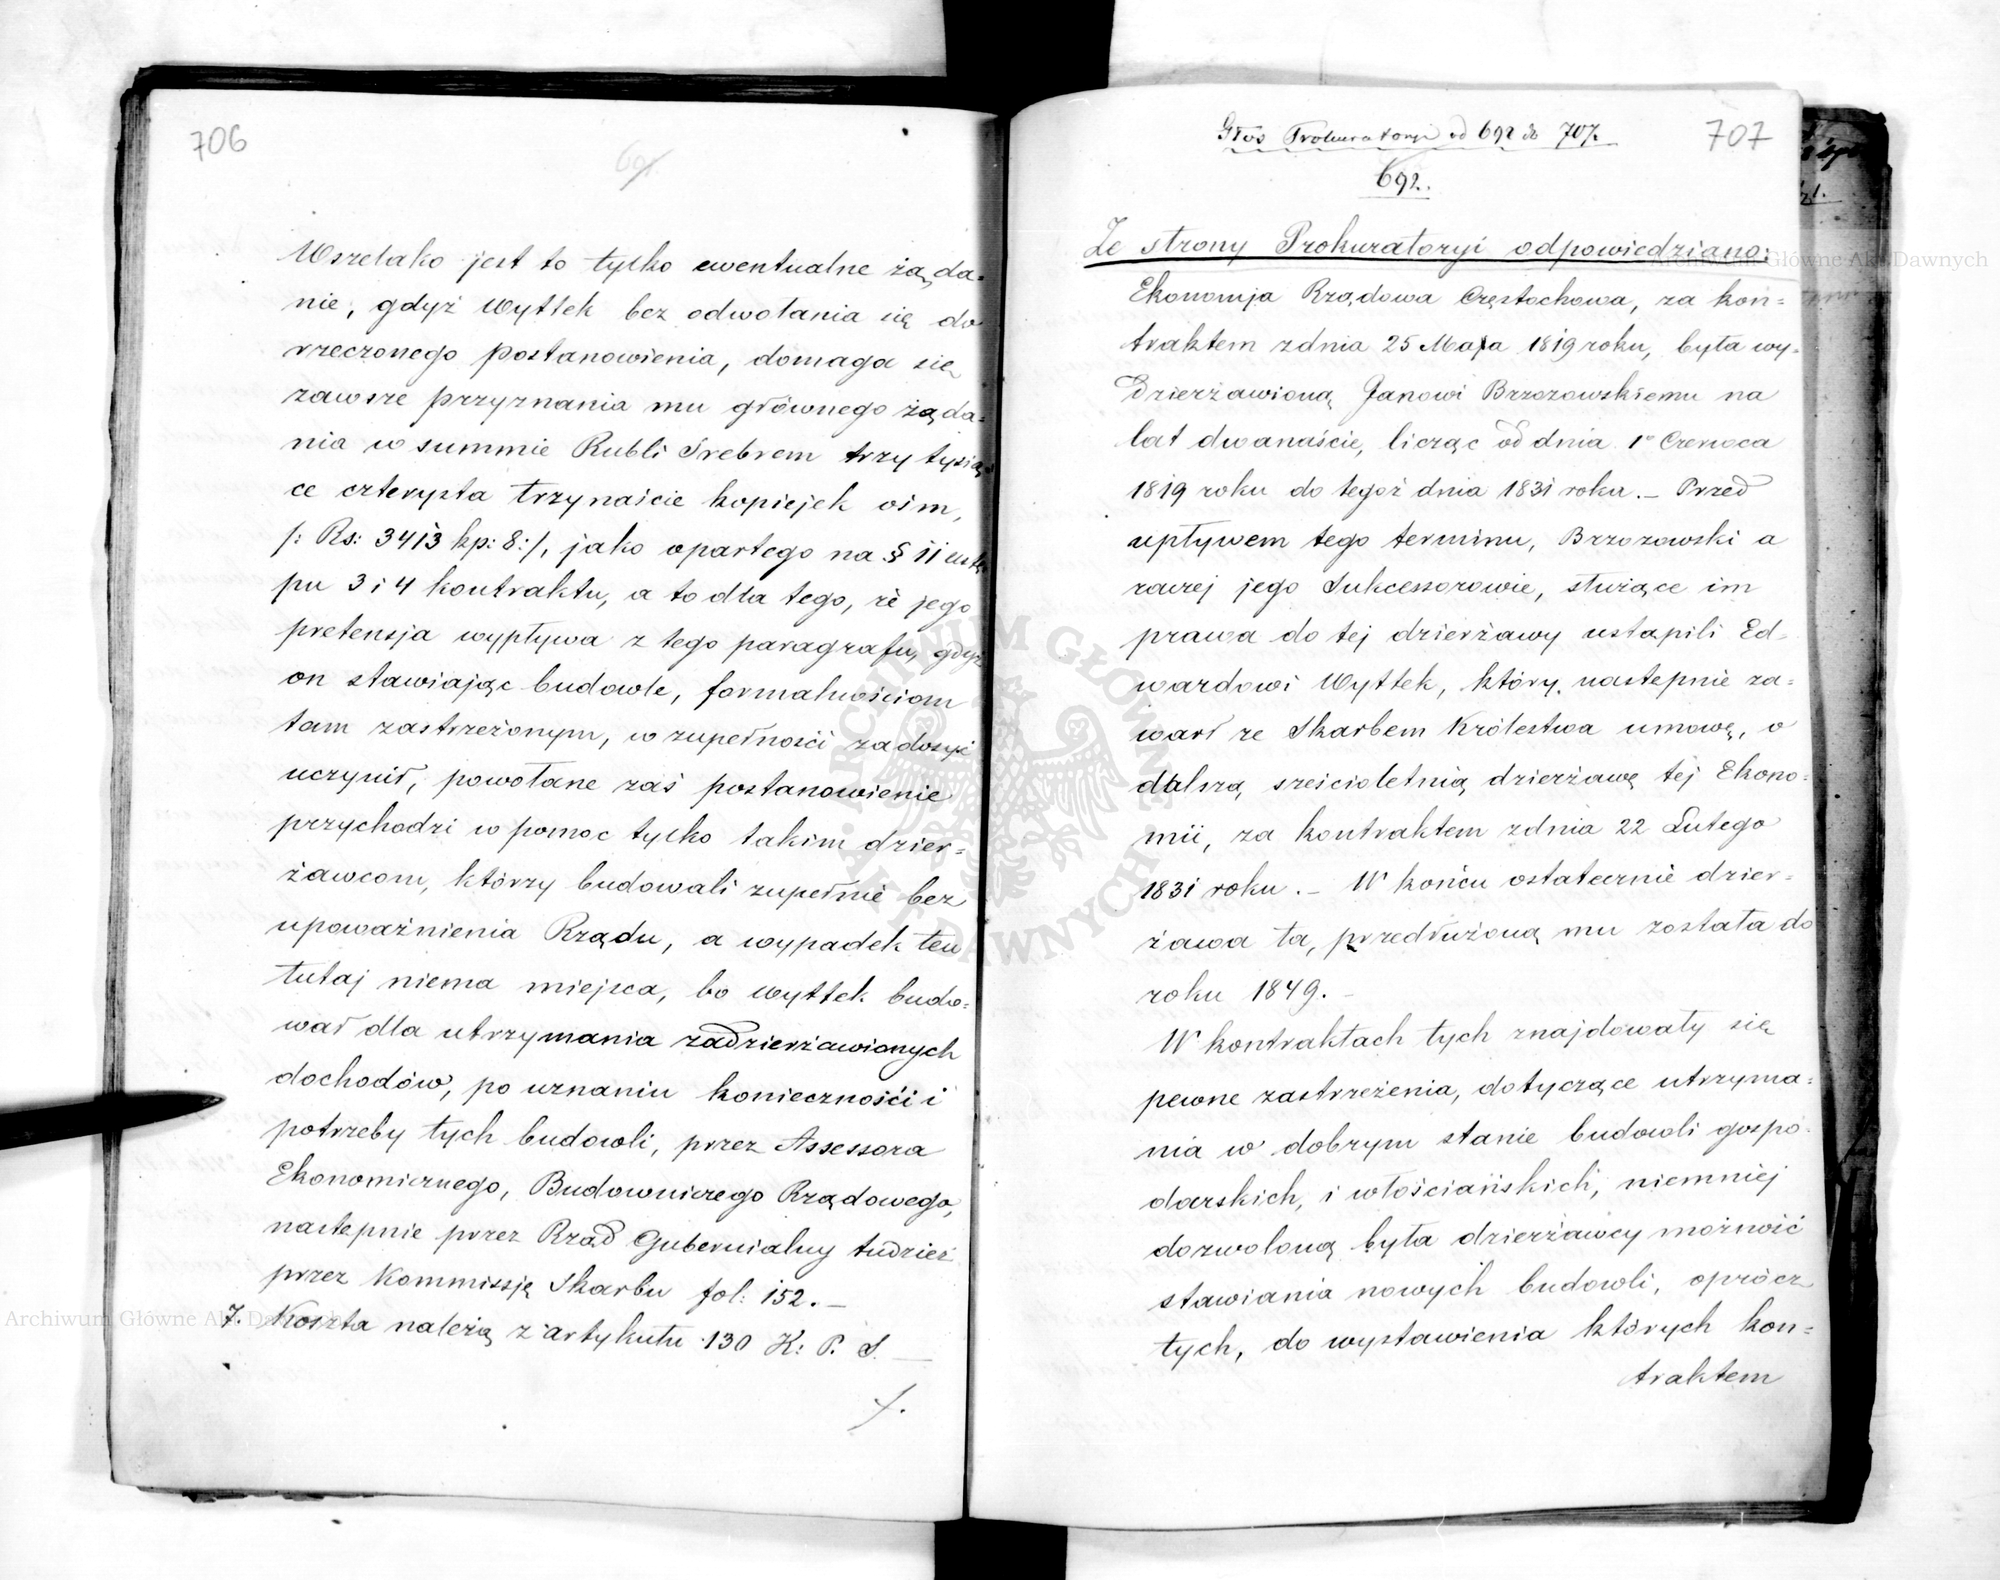 706
691.
Wszelako jest to tylko ewentualne żąda=
nie, gdyż Wyttek bez odwołania się do
rzeczonego postanowienia, domaga się
zawsze przyznania mu głównego żąda=
nia w summie Rubli Srebrem trzy tysią
ce czterysta trzynaście kopiejek ośm,
/: Rs: 3413 kp: 8:/, jako opartego na § 11 ustę
pu 3 i 4 kontraktu, a to dla tego, że jego
pretensja wypływa z tego paragrafu, gdyż
on stawiając budowle, formalnościom
tam zastrzeżonym, w zupełności zadosyć
uczynił, powołane zaś postanowienie
przychodzi w pomoc tylko takim dzier=
żawcom, którzy budowali zupełnie bez
upoważnienia Rządu, a wypadek ten
tutaj niema miejsca, bo Wyttek budo=
wał dla utrzymania zadzierżawionych
dochodów, po uznaniu konieczności i
potrzeby tych budowli, przez Assessora
Ekonomicznego, Budowniczego Rządowego,
następnie przez Rząd Gubernialny tudzież
przez Kommissję Skarbu fol: 152. —
7. Koszta należą z artykułu 130 K: P. S. —
/.
Głos Prokuratoryi od 692 do 707.
707
692.
Ze strony Prokuratoryi odpowiedziano:
Ekonomja Rządowa Częstochowa, za kon=
traktem z dnia 25 Maja 1819 roku, była wy=
dzierżawioną Janowi Brzozowskiemu na
lat dwanaście, licząc od dnia 1º Czerwca
1819 roku do tegoż dnia 1831 roku. — Przed
upływem tego terminu, Brzozowski a
raczej jego Sukcessorowie, służące im
prawa do tej dzierżawy ustąpili Ed=
wardowi Wyttek, który następnie za=
warł ze Skarbem Królestwa umowę, o
dalszą sześcioletnią dzierżawę tej Ekono=
mii, za kontraktem z dnia 22 Lutego
1831 roku. — W końcu ostatecznie dzier=
żawa ta, przedłużoną mu została do
roku 1849. —
W kontraktach tych znajdowały się
pewne zastrzeżenia, dotyczące utrzyma=
nia w dobrym stanie budowli gospo=
darskich, i włościańskich, niemniej
dozwoloną była dzierżawcy możność
stawiania nowych budowli, oprócz
tych, do wystawienia których kon=
traktem
Archiwum Główne Akt Dawnych
Archiwum Główne Akt Dawnych
ARCHIWUM GŁÓWNE AKT DAWNYCH